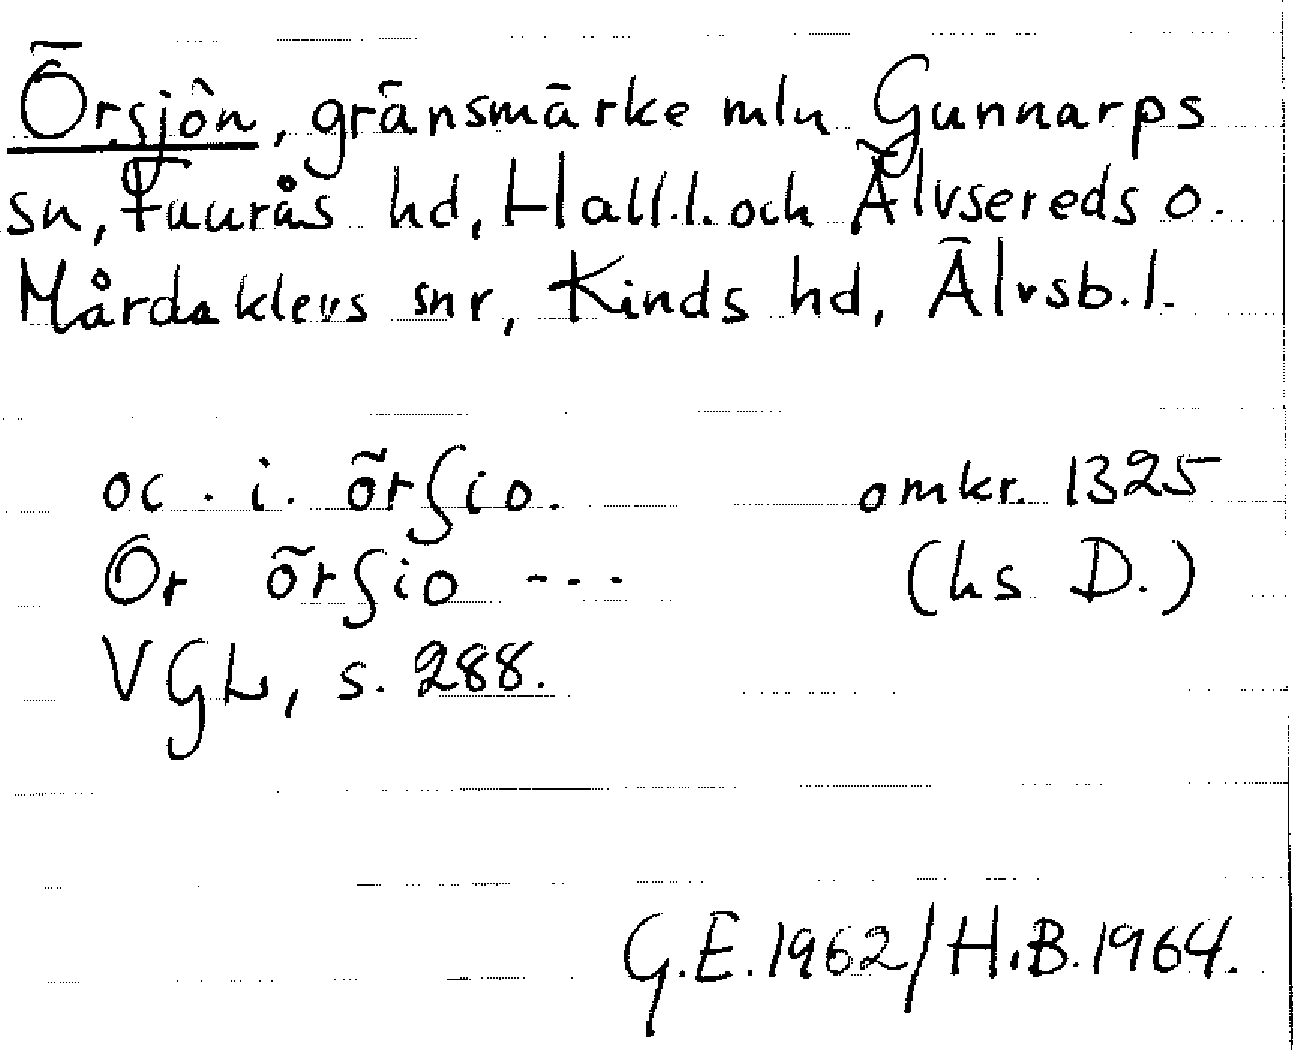 Örsjön, gränsmärke mln Gunnarps
sn, Faurås hd, Hall.l. och Älvsereds o.
Mårdaklevs snr, Kinds hd, Älvsb.l.
oc . i . örſio. omkr. 1325
Ör örſio --- (hs D.)
VGL, s. 288.
G.E. 1962/H.B. 1964.